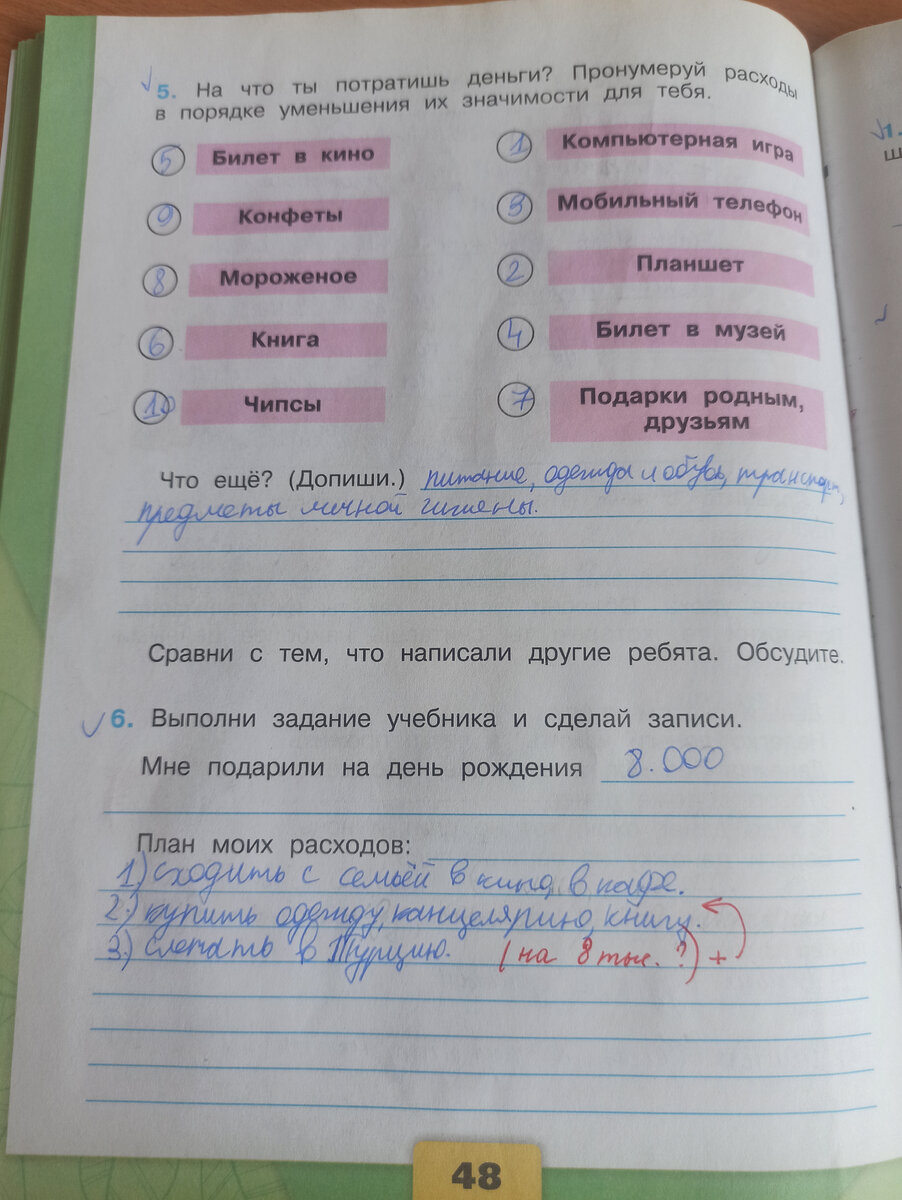 5. На что ты потратишь деньги? Пронумеруй расходы
в порядке уменьшения их значимости для тебя.
5 Билет в кино
1 Компьютерная игра
9 Конфеты
3 Мобильный телефон
8 Мороженое
2 Планшет
6 Книга
4 Билет в музей
10 Чипсы
7 Подарки родным,
друзьям
Что ещё? (Допиши.) питание, одежда и обувь, транспорт,
предметы личной гигиены.
Сравни с тем, что написали другие ребята. Обсудите.
6. Выполни задание учебника и сделай записи.
Мне подарили на день рождения 8.000
.
План моих расходов:
1) сходить с семьёй в кино, в кафе.
2.) купить одежду, канцелярию, книгу.
3.) слетать в Турцию. (на 8 тыс. ?) +
48
1.
ш